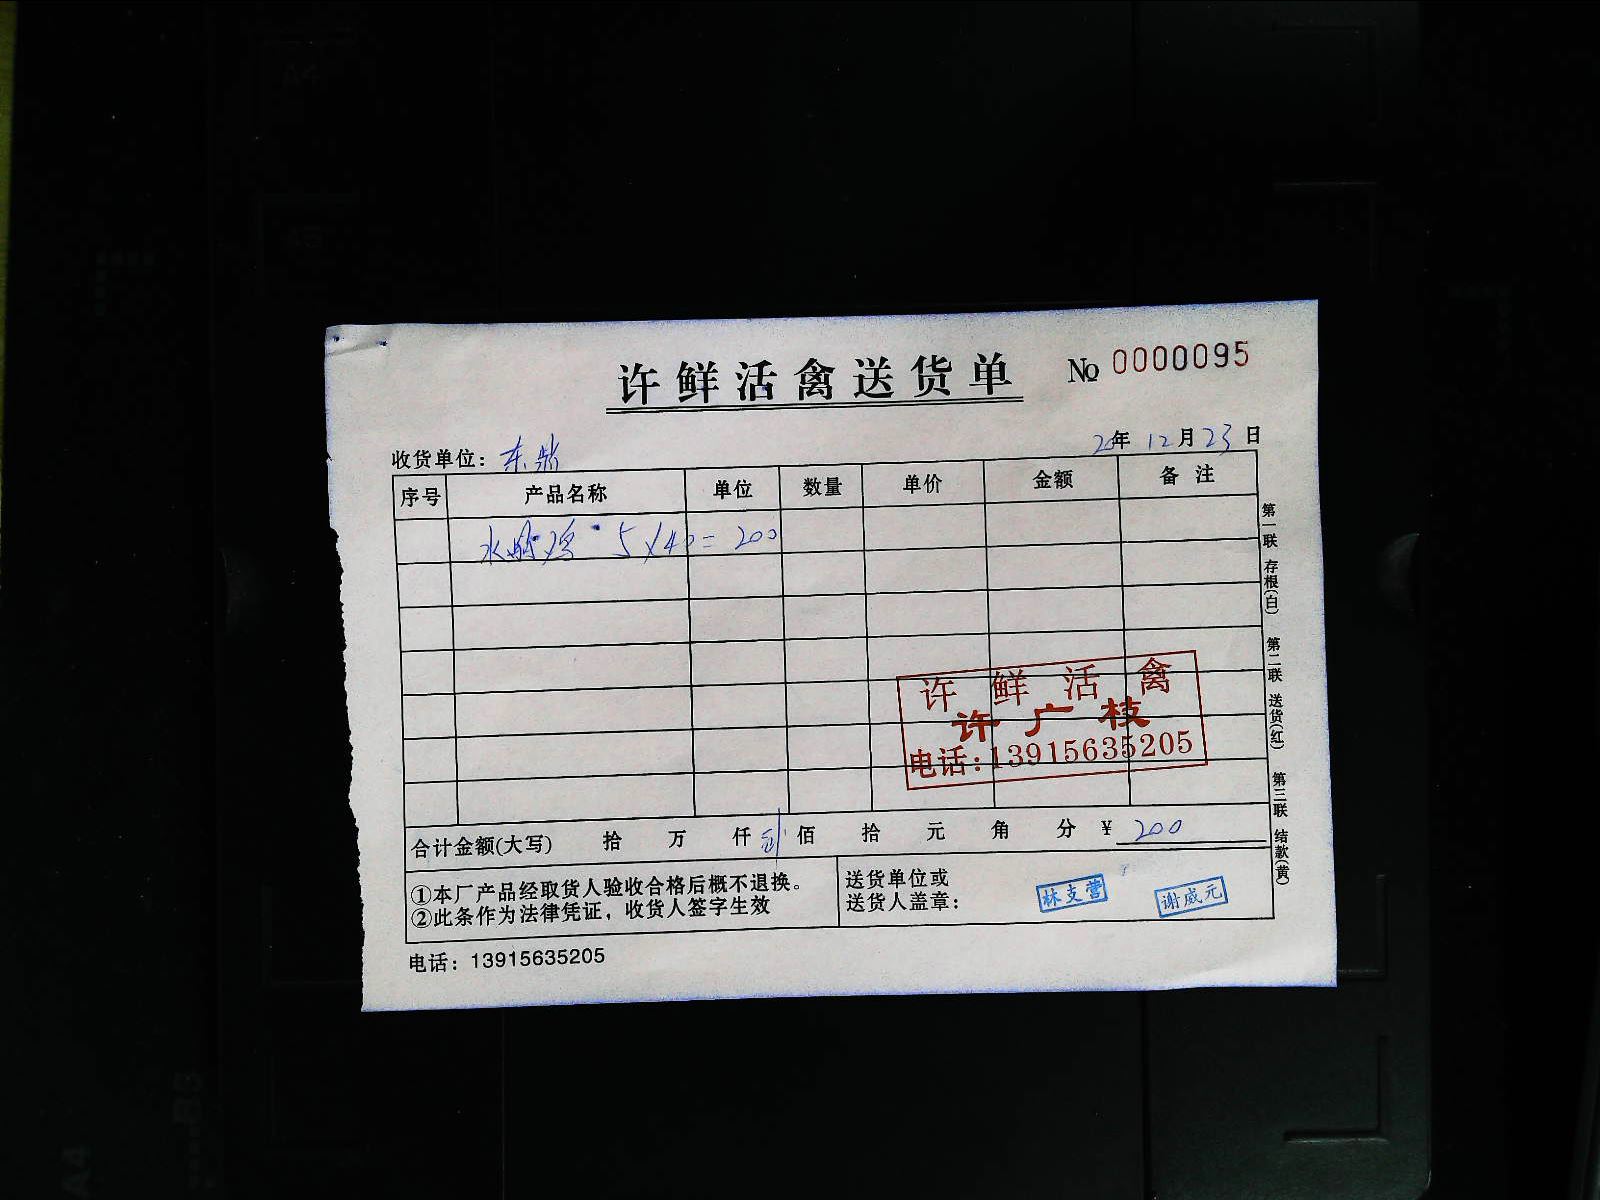 许鲜活禽送货单 № 0000095
收货单位：东
20年 12月 23日
序号 产品名称 单位 数量 单价 金额 备注
水 鸡 5×40=200
许鲜活禽
许广枝
电话:13915635205
合计金额(大写) 拾 万 仟 贰佰 拾 元 角 分 ¥ 200
①本厂产品经取货人验收合格后概不退换。
②此条作为法律凭证，收货人签字生效
送货单位或
送货人盖章：
林支营
谢威元
电话：13915635205
第一联 存根(白) 第二联 送货(红) 第三联 结款(黄)
A4
B5
A4